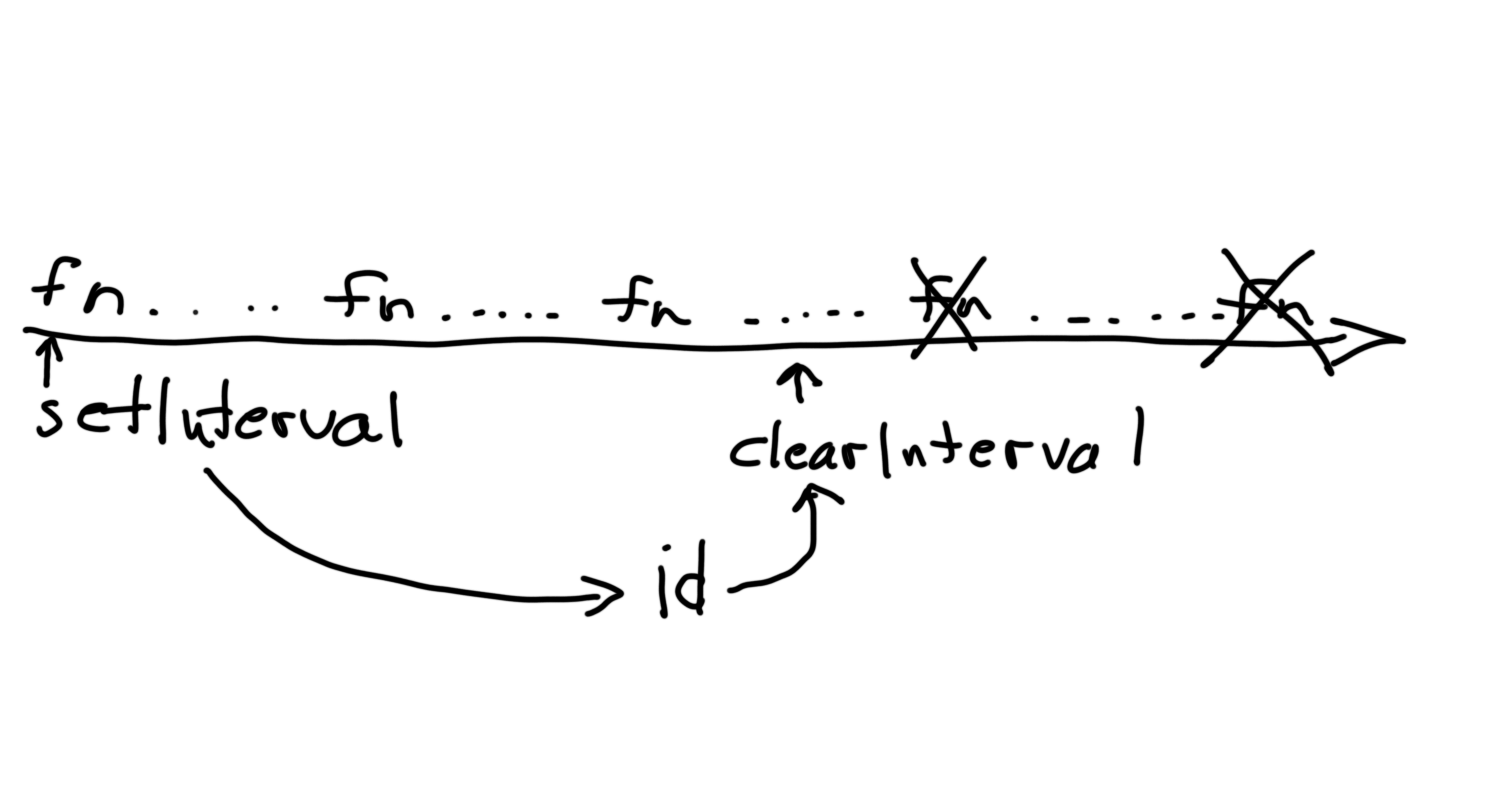 fn..... fn...... fn ...... fn ....... fn
setInterval
clearInterval
id